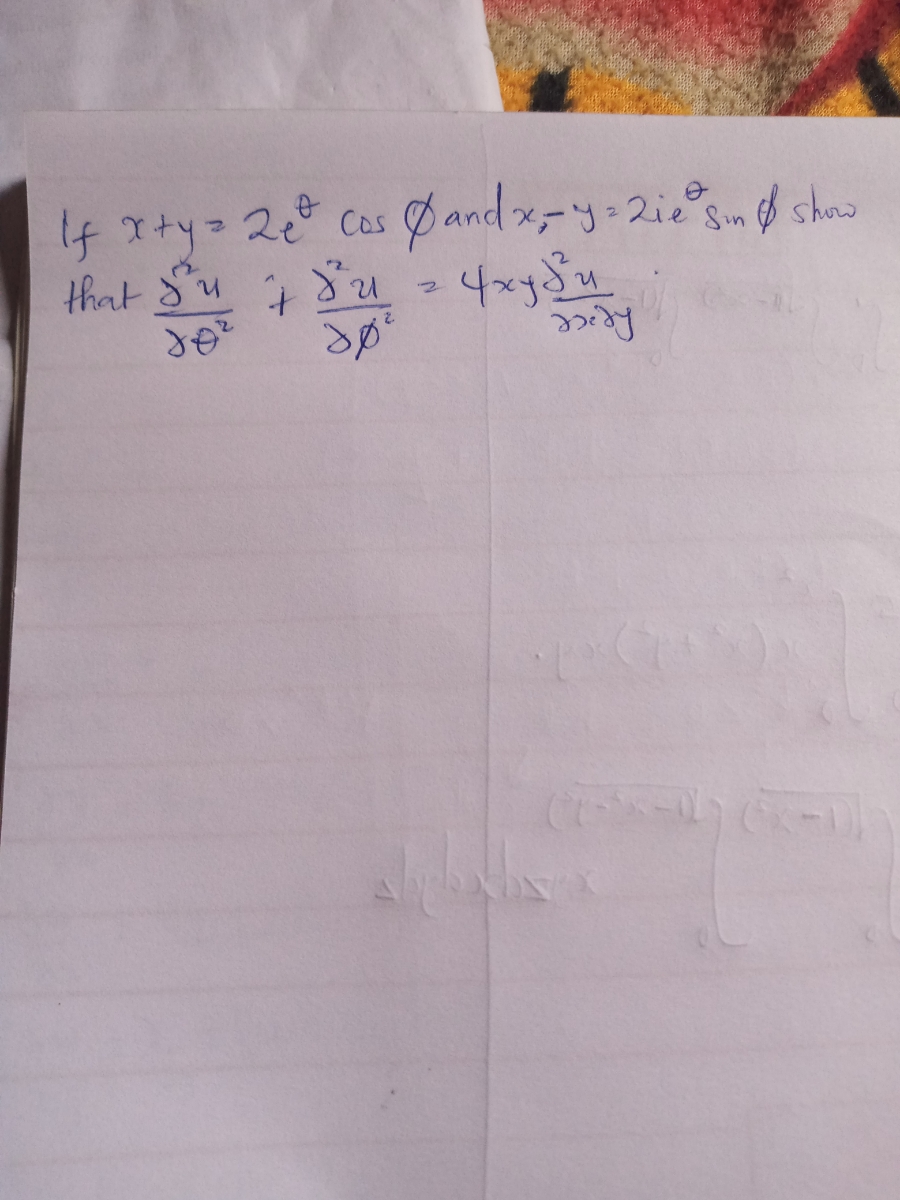 If x+y=2e^θ cos ∅ and x-y=2ie^θ sin ∅ show
that ∂²u/∂θ² + ∂²u/∂∅² = 4xy ∂²u/∂x∂y